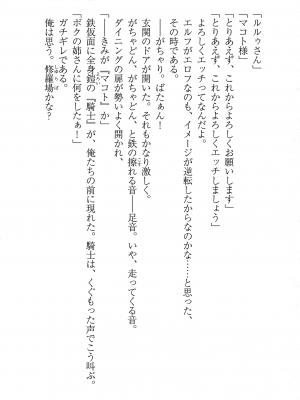 「ルルゥさん」
「マコト様」
「とりあえず、これからよろしくお願いします」
「とりあえず、これからよろしくエッチしましょう」
よろしくエッチってなんだよ。
エルフがエロフなのも、イメージが逆転したからなのかな…と思った、
その時である。
――がちゃり。ばたぁん！
玄関のドアが開いた。それもかなり激しく。
がちゃどん、がちゃどん、と鉄の擦れる音――足音。いや、走ってくる音。
ダイニングの扉が勢いよく開かれ、
「――きみが『マコト』か」
鉄仮面に全身鎧の『騎士』が、俺たちの前に現れた。騎士は、くぐもった声でこう叫ぶ。
「ボクの姉さんに何をしたぁ！」
ガチギレである。
俺は思う。修羅場かな？